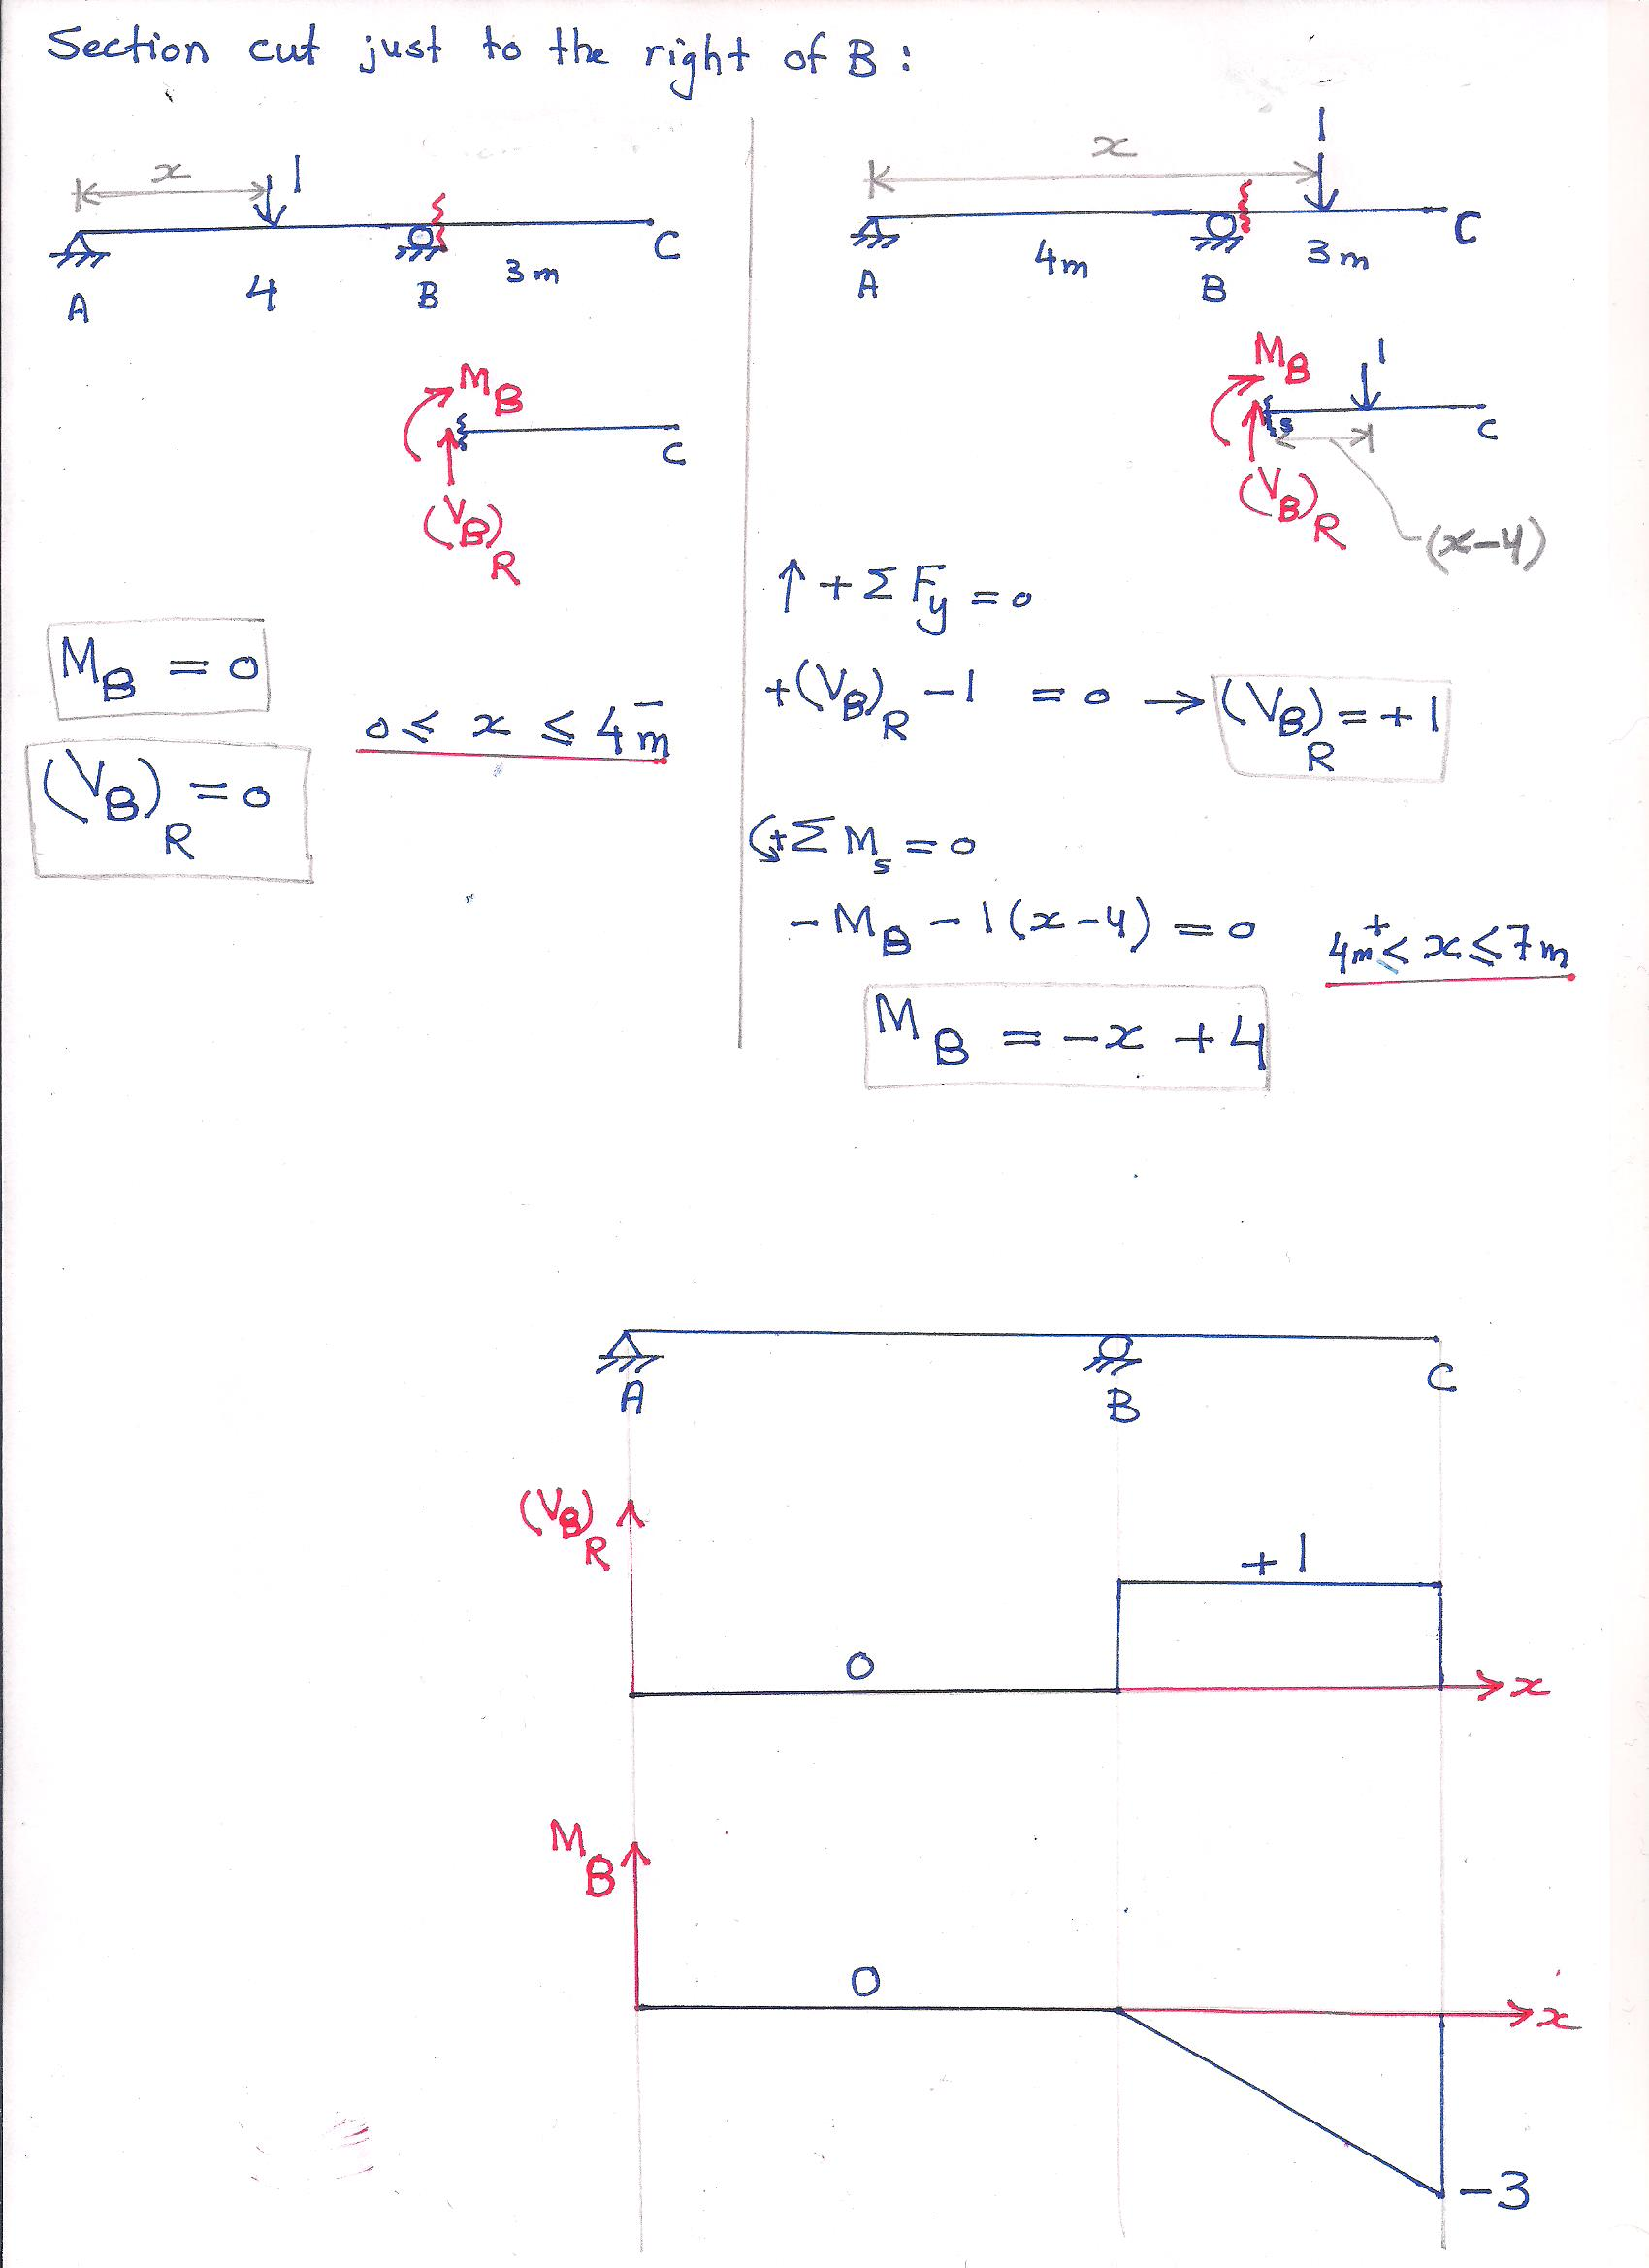 Section cut just to the right of B :
x
1
A
4
B
3m
C
M_B
C
(V_B)_R
M_B = 0
(V_B)_R = 0
0 ≤ x ≤ 4m⁻
x
1
A
4m
B
3m
C
M_B
1
s
C
(V_B)_R
(x-4)
↑ + Σ F_y = 0
+(V_B)_R - 1 = 0 → (V_B)_R = +1
+ Σ M_s = 0
- M_B - 1(x-4) = 0
4m⁺ ≤ x ≤ 7m
M_B = -x + 4
A
B
C
(V_B)_R
0
+1
x
M_B
0
x
-3